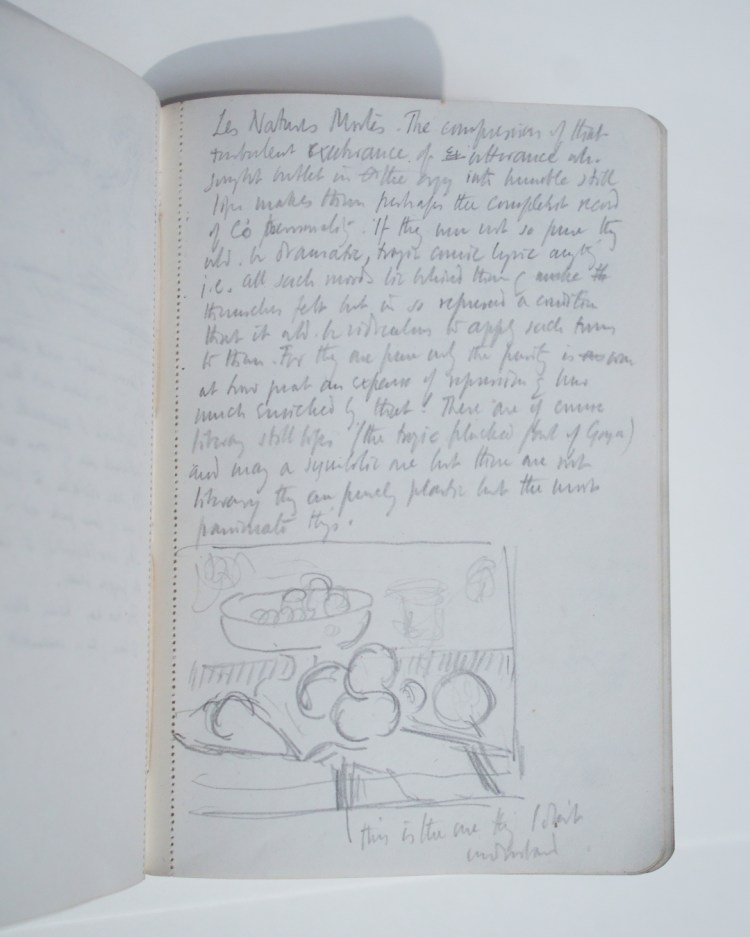 Les Natures Mortes. The compression of that
turbulent exuberance of utterance wh.
sought outlet in the orgy into humble still
lifes makes them perhaps the completest record
of C's personality. If they were not so pure they
wld. be dramatic, tragic comic lyric
i.e. all such moods lie behind them & make
themselves felt but in so repressed a condition
that it wld. be ridiculous to apply such terms
to them. For they are pure only the purity is won
at how great an expense of repression & how
much enriched by that! There are of course
literary still lifes (the tragic plucked fowl of Goya)
and many a symbolic one but these are not
literary they are purely plastic but the most
passionate things.
this is the one thing I don't
understand